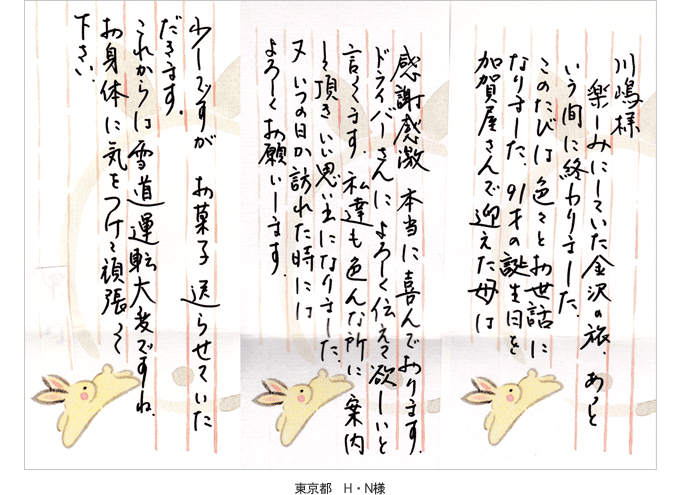 川嶋様
楽しみにしていた金沢の旅、あっと
いう間に終わりました。
このたびは色々とお世話に
なりました。91才の誕生日を
加賀屋さんで迎えた母は
感謝感激 本当に喜んでおります。
ドライバーさんに よろしく伝えて欲しいと
言ってます。私達も色んな所に 案内
して頂き いい思い出になりました。
又 いつの日か訪れた時には
よろしくお願いします。
少しですが お菓子 送らせていた
だきます。
これからは雪道運転大変ですね。
お身体に気をつけて頑張って
下さい。
東京都 H・N様